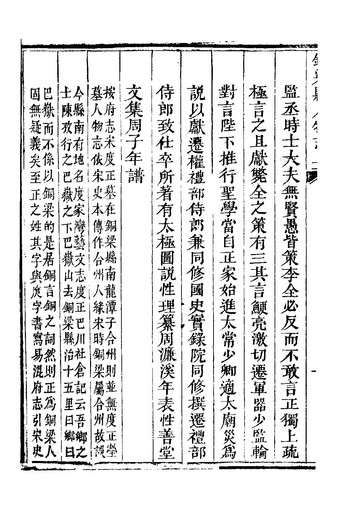 監丞時士大夫無賢愚皆策李全必反而不敢言正獨上疏
極言之且獻斃全之策有三其言鯁亮激切遷軍器少監輪
對言陛下推行聖學當自正家始進太常少卿適太廟災爲
說以獻遷權禮部侍郎兼同修國史實錄院同修撰遷禮部
侍郎致仕卒所著有太極圖說性理纂周濂溪年表性善堂
文集周子年譜
按府志未度正墓在銅梁縣南龍潭子合州則並無度正塋
墓人物志依宋史本傳作合州人緣宋時銅梁屬合州故誤
今縣南有地名度家灣藝文志度正巴川社倉記云吾鄉之
士陳孜行之巴嶽之下巴嶽山去銅梁縣治十五里曰鄉曰
巴嶽而不係以銅梁的是居銅言銅之詞然則正爲銅梁人
固無疑義矣至正之姓其字與庹字書寫易混府志引宋史